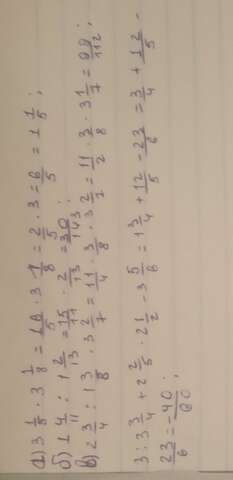 а) 3 1/8 · 3 1/8 = 18/5 · 3 1/8 = 2/5 · 3 = 6/5 = 1 1/5;
б) 1 4/11 : 1 2/13 = 15/11 · 2/13 = 30/143;
в) 2 3/4 : 1 3/8 · 3 2/7 = 11/4 · 3/8 · 3 2/7 = 11/2 · 3/8 · 3 1/7 = 99/112;
3 : 3 3/4 + 2 2/5 · 2 1/2 - 3 5/6 = 1 3/4 + 12/5 - 23/6 = 3/4 + 12/5 -
23/6 = -40/60;